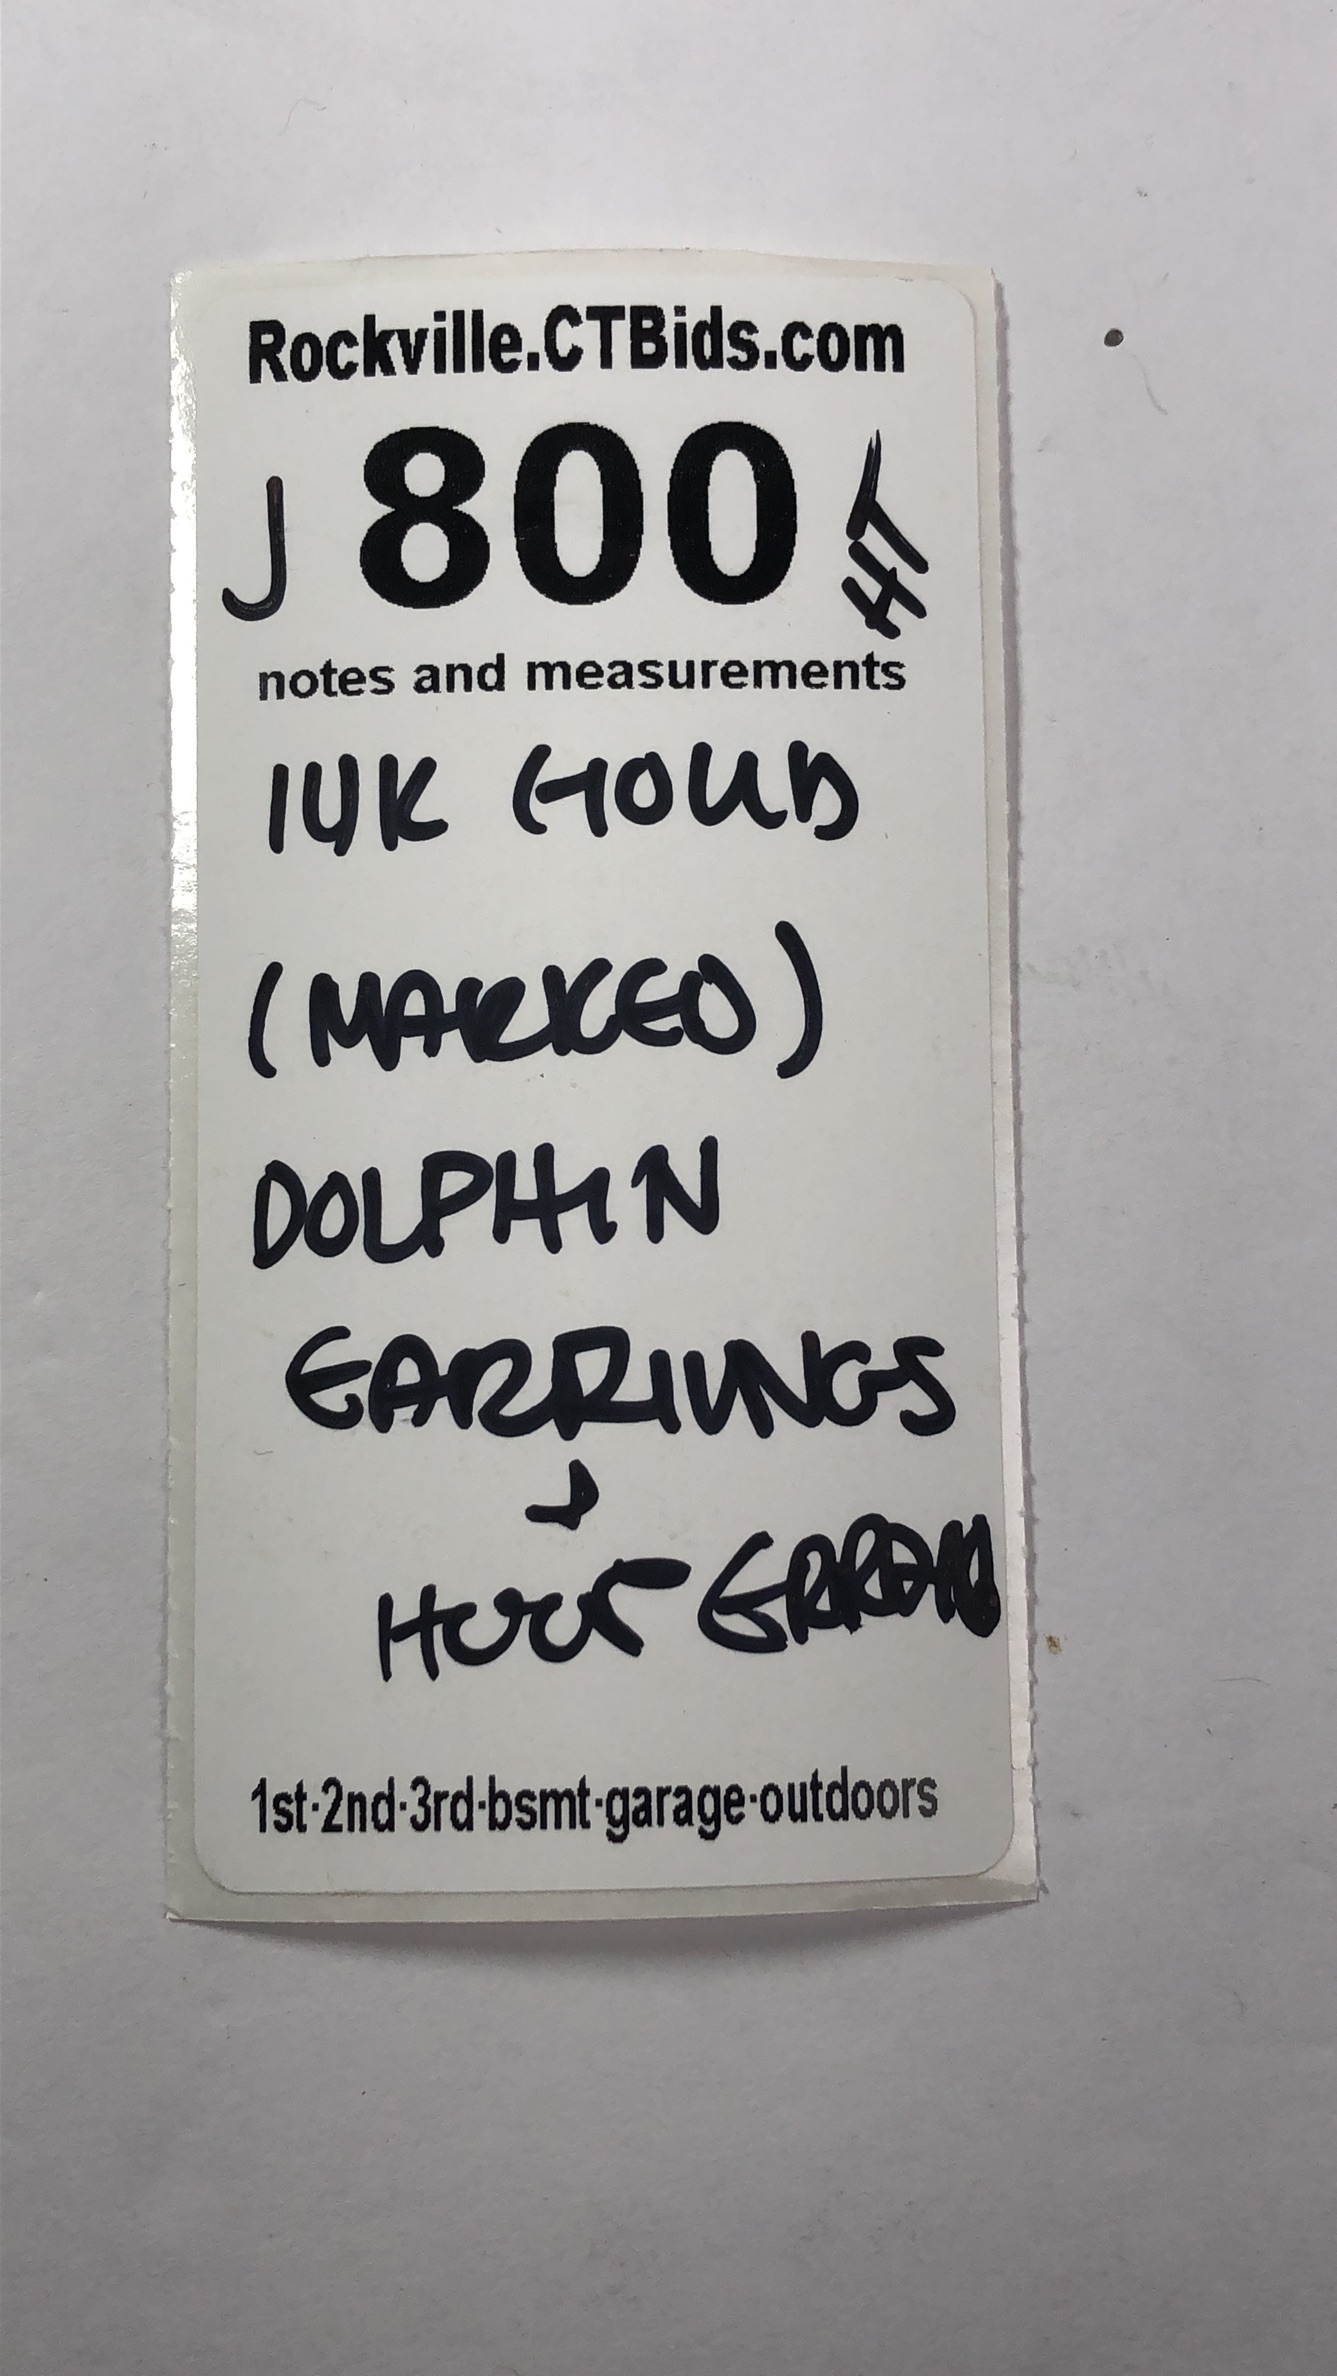 Rockville.CTBids.com
J 800 HT
notes and measurements
14K GOLD
(MARKED)
DOLPHIN
EARRINGS
HOOP
1st·2nd·3rd·bsmt·garage·outdoors